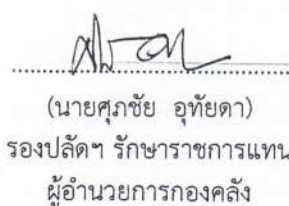 (นายศุภชัย อุทัยดา)
รองปลัดฯ รักษาราชการแทน
ผู้อำนวยการกองคลัง